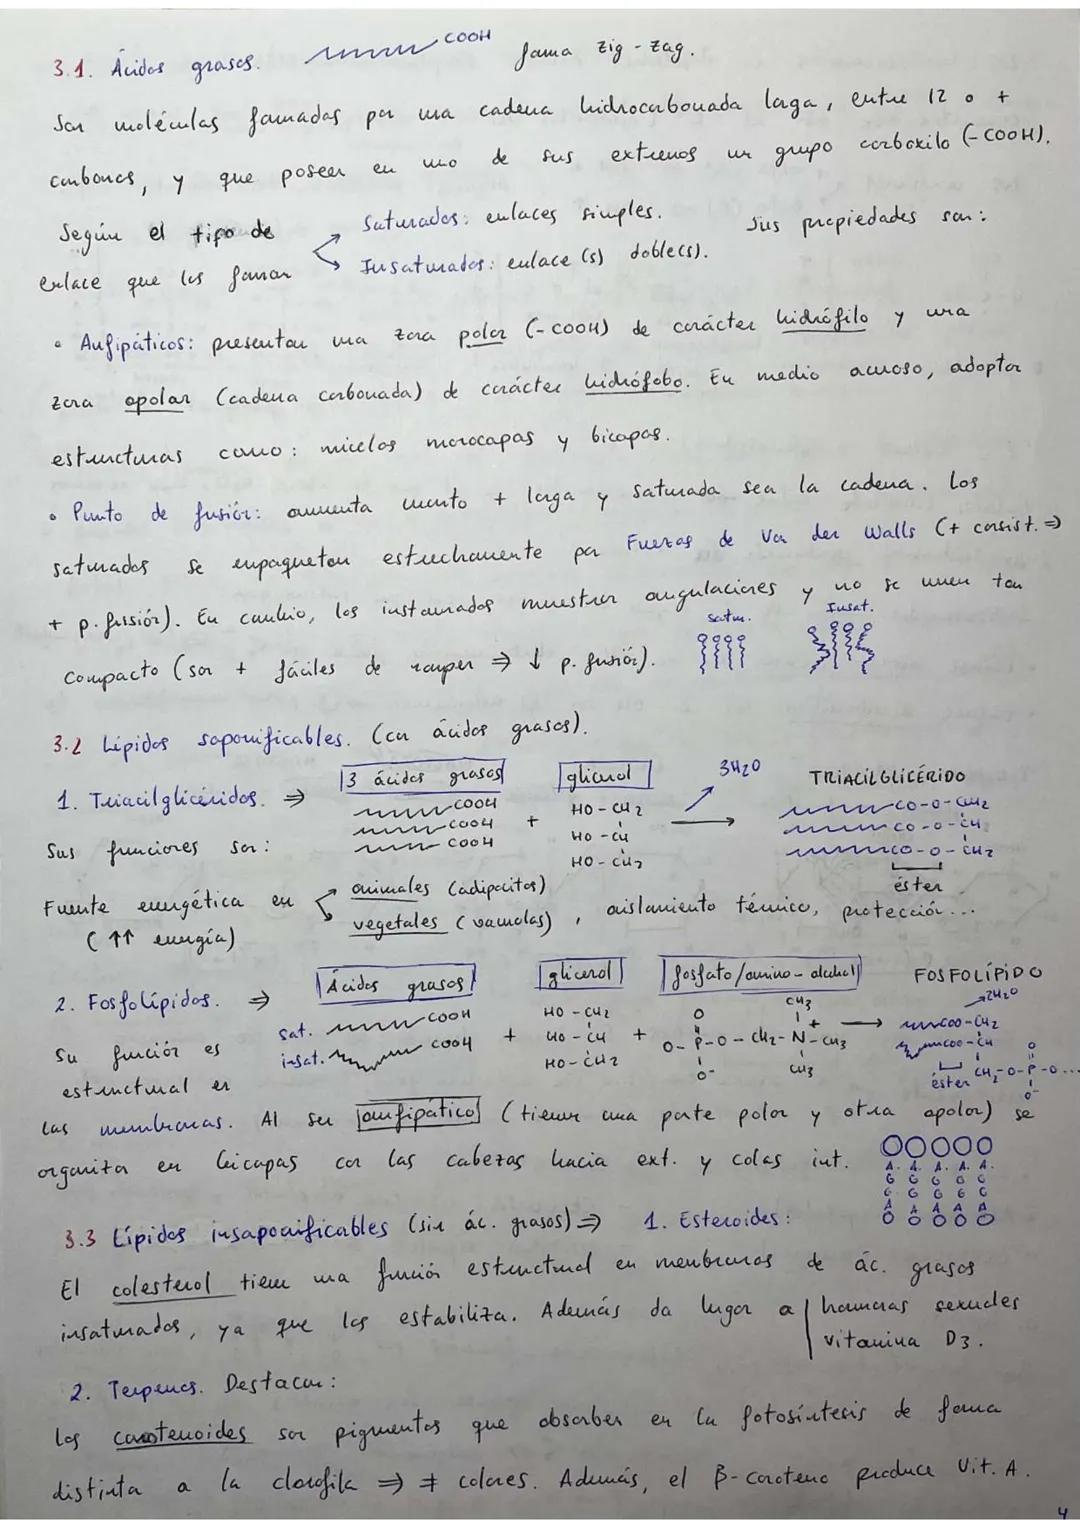 3.1. Ácidos grasos. COOH forma zig-zag.
Son moléculas formadas por una cadena hidrocarbonada larga, entre 12 o +
carbonos, y que poseen en uno de sus extremos un grupo carboxilo (-COOH).
Según el tipo de
enlace que los forman
Saturados: enlaces simples.
Insaturados: enlace(s) doble(s).
Sus propiedades son:
• Anfipáticos: presentan una zona polar (-COOH) de carácter hidrófilo y una
zona apolar (cadena carbonada) de carácter hidrófobo. En medio acuoso, adoptan
estructuras como: micelas monocapas y bicapas.
• Punto de fusión: aumenta cuanto + larga y saturada sea la cadena. Los
saturados se empaquetan estrechamente por Fuerzas de Van der Walls (+ consist. ⇒
+ p. fusión). En cambio, los instaurados muestran angulaciones y no se unen tan
compacto (son + fáciles de romper ⇒ ↓ p. fusión).
Satur. Insat.
3.2 Lípidos saponificables. (con ácidos grasos).
1. Triacilglicéridos. ⇒
3 ácidos grasos
COOH
COOH
COOH
+
glicerol
HO-CH2
HO-CH
HO-CH2
→ 3H2O
TRIACILGLICÉRIDO
CO-O-CH2
CO-O-CH
CO-O-CH2
éster
Sus funciones son:
Fuente energética en
(↑↑ energía)
animales (adipocitos)
vegetales (vacuolas)
, aislamiento térmico, protección...
2. Fosfolípidos. ⇒
Ácidos grasos
sat. COOH
insat. COOH
+
glicerol
HO-CH2
HO-CH
HO-CH2
+
fosfato/amino-alcohol
CH3
O
O-P-O-CH2-N-CH3
+
O-
CH3
→
FOSFOLÍPIDO
2H2O
COO-CH2
COO-CH
O
CH2-O-P-O...
O-
éster
Su función es
estructural en
las membranas. Al ser anfipático (tienen una parte polar y otra apolar) se
organizan en bicapas con las cabezas hacia ext. y colas int.
3.3 Lípidos insaponificables (sin ác. grasos) ⇒ 1. Esteroides:
El colesterol tiene una función estructural en membranas de ác. grasos
insaturados, ya que los estabiliza. Además da lugar a
hormonas sexuales
vitamina D3.
2. Terpenos. Destacan:
los carotenoides son pigmentos que absorben en la fotosíntesis de forma
distinta a la clorofila ⇒ ≠ colores. Además, el β-caroteno produce Vit. A.
4